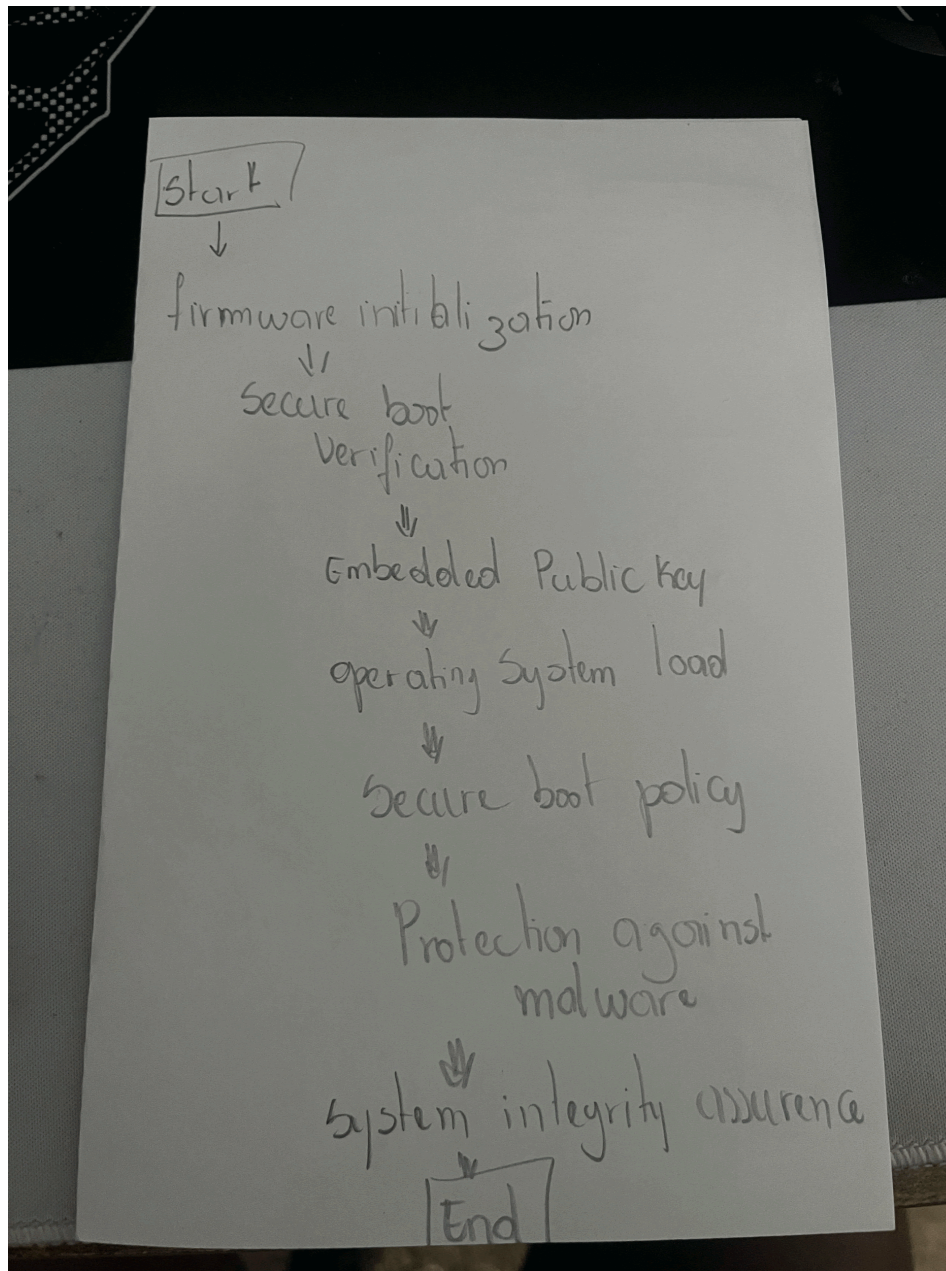 Start
firmware initialization
Secure boot
Verification
Embedded Public Key
operating System load
Secure boot policy
Protection against
malware
System integrity assurence
End